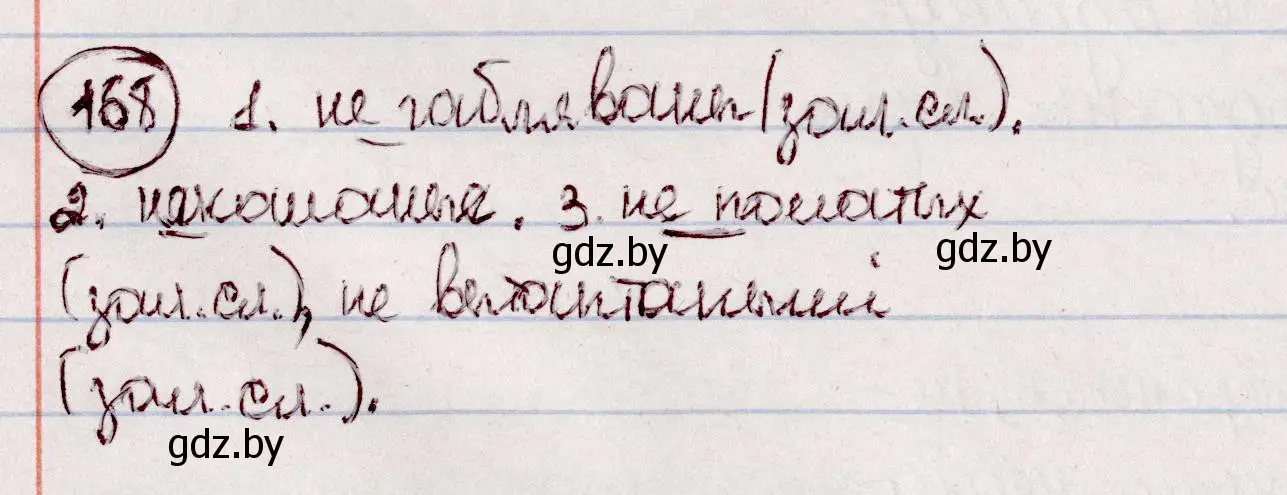 168 1. не габляваны (зал.сл.).
2. някошаныя. 3. не паматых
gdz.by gdz.by
(зал.сл.), не вытаптанымі
(зал.сл.).
gdz.by